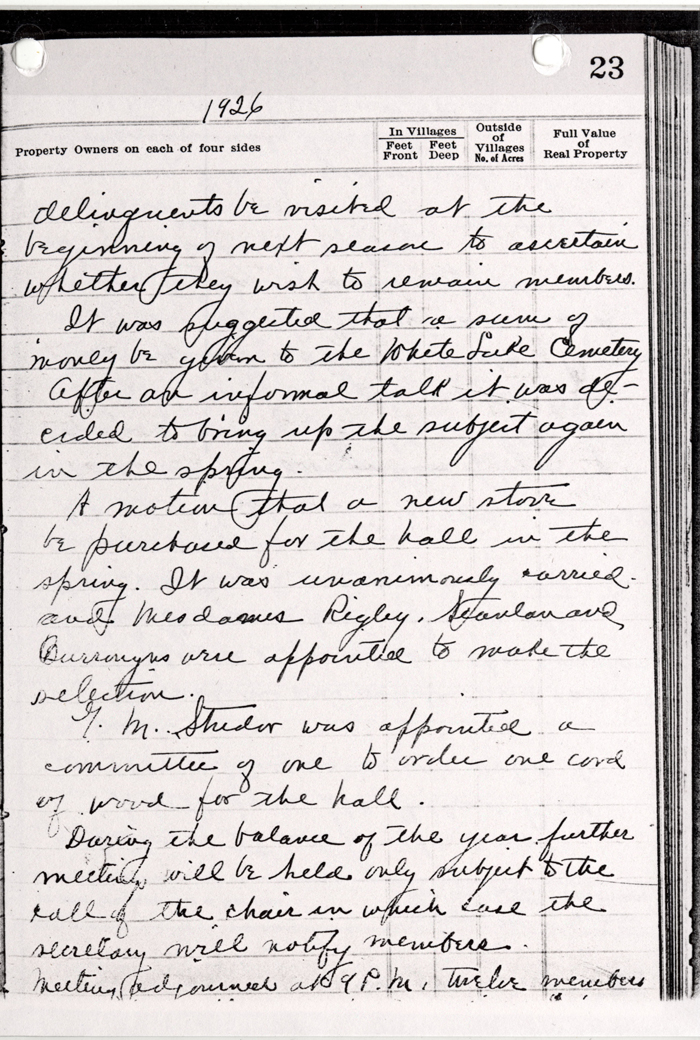 23
1926
Property Owners on each of four sides
In Villages
Feet Front
Feet Deep
Outside of Villages No. of Acres
Full Value of Real Property
delinquents be visited at the
beginning of next season to ascertain
whether they wish to remain members.
It was suggested that a sum of
money be given to the White Lake Cemetery
After an informal talk it was de-
cided to bring up the subject again
in the spring.
A motion that a new stove
be purchased for the hall in the
spring. It was unanimously carried.
and Mesdames Rigby, Scanlan and
Burroughs were appointed to make the
selection.
M. Shedor was appointed a
committee of one to order one cord
of wood for the hall.
During the balance of the year further
meeting will be held only subject to the
call of the chair in which case the
secretary will notify members.
Meeting adjourned at 9 P.M. twelve members